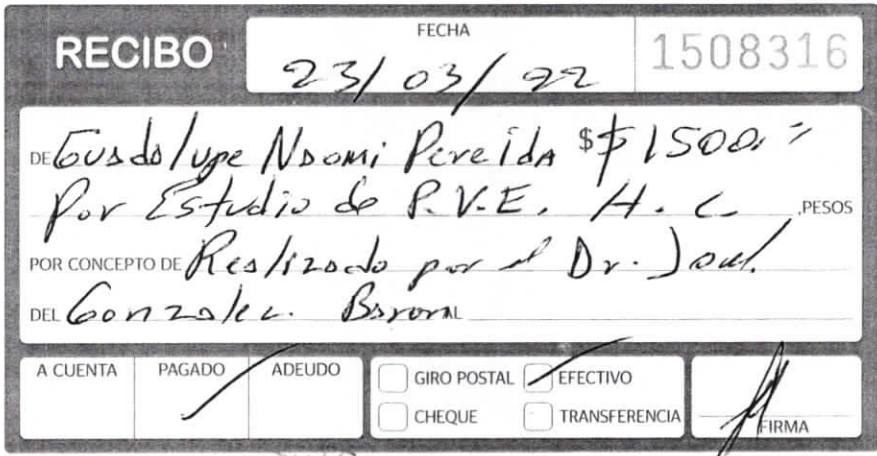 RECIBO
FECHA
23/03/22
1508316
DE Guadalupe Naomi Pereida $ $1500.=
Por Estudio de P.V.E. H.C. ,PESOS
POR CONCEPTO DE Realizado por el Dr. Joul.
DEL Gonzalez. AL
A CUENTA PAGADO ADEUDO
GIRO POSTAL EFECTIVO
CHEQUE TRANSFERENCIA
FIRMA